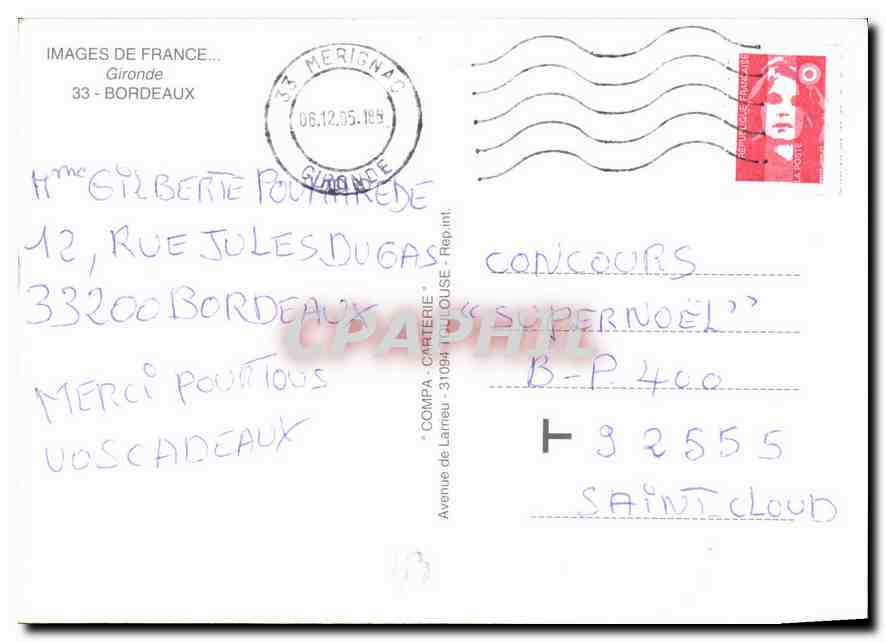 IMAGES DE FRANCE...
Gironde
33 - BORDEAUX
33 MERIGNAC
06.12.95.18H
GIRONDE
REPUBLIQUE FRANCAISE
LA POSTE
Mme GILBERTE POUMAREDE
12, RUE JULES DUGAS
33200 BORDEAUX
MERCI POUR TOUS
VOS CADEAUX
" COMPA - CARTERIE "
Avenue de Larrieu - 31094 TOULOUSE - Rep.int.
CONCOURS
"SUPERNOËL"
B-P. 400
T 92555
SAINT-CLOUD
CPAPHIL